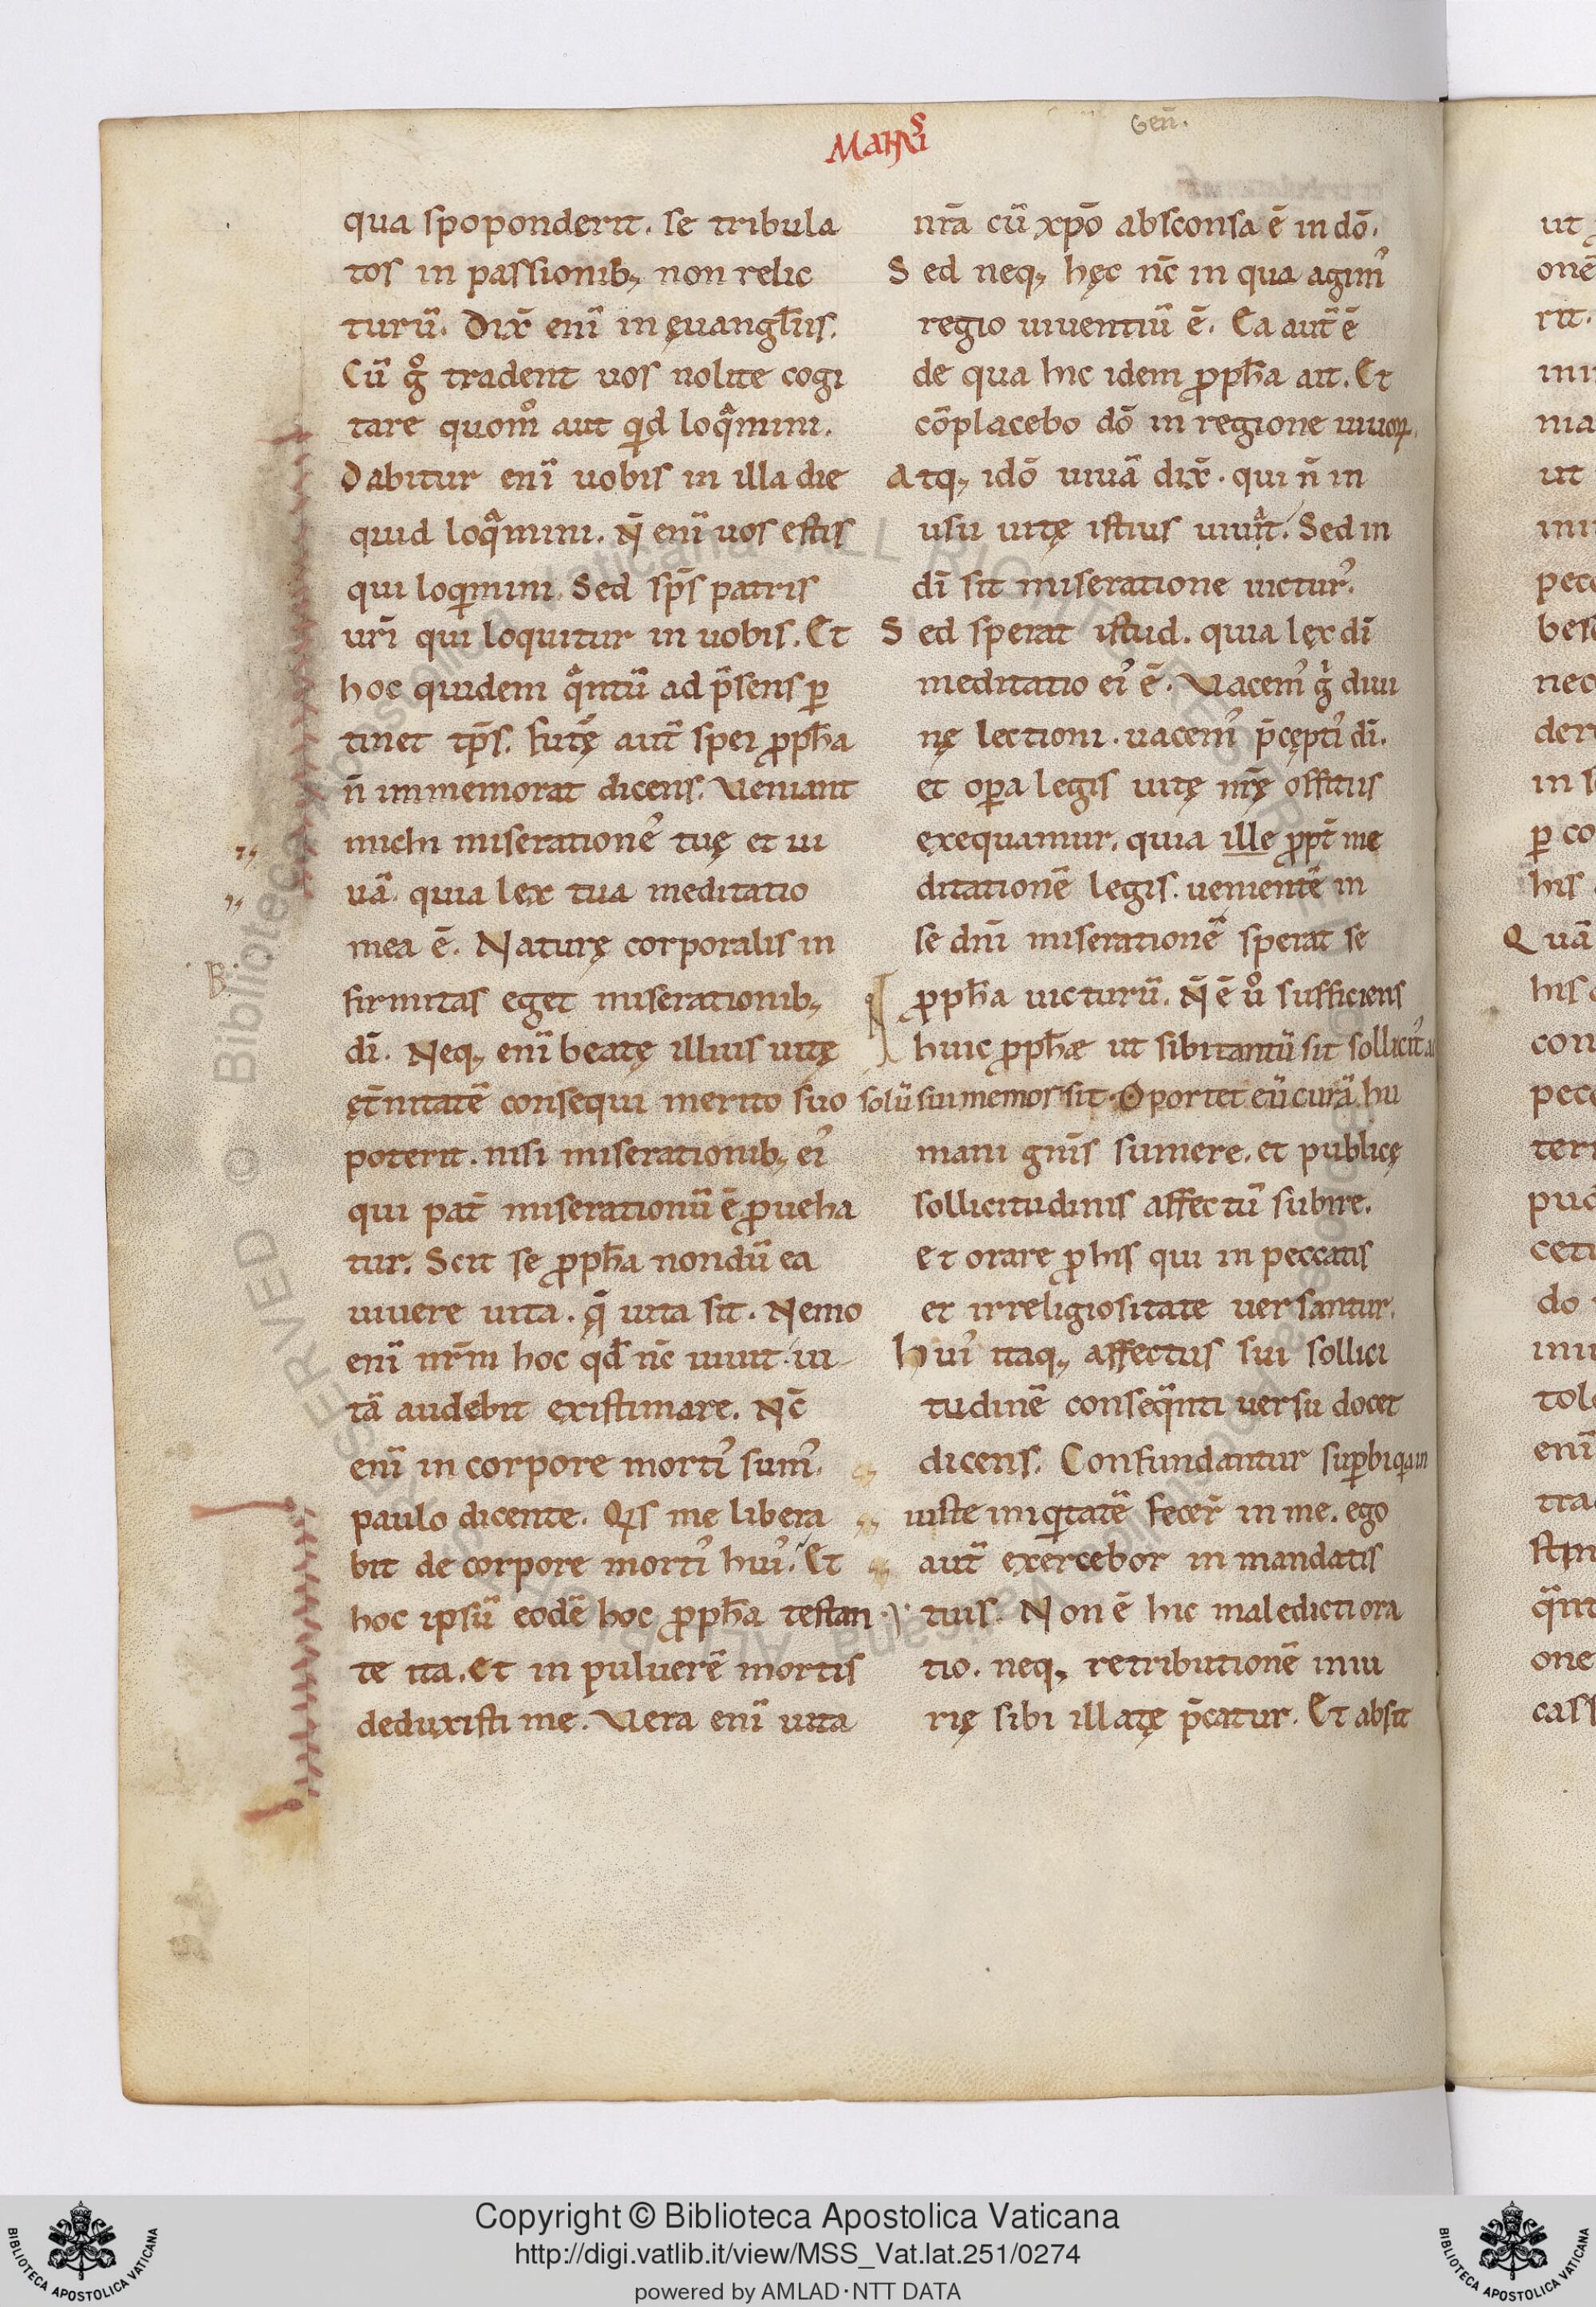 Gen̄.
qua spoponderit. se tribula
tos in passionib; non relic
turū. Dix̄ enī in ęuangl̄iis.
Cū gͦ tradent uos nolite cogi
tare quomͦ aut qid loqͣmini.
Dabitur enī uobis in illa die
quid loqͣmini. N̄ enī uos estis
qui loqimini. Sed sp̄s patris
ur̄i qui loquitur in uobis. Et
hoc quidem qͣntū ad p̄sens ꝑ
tinet tp̄s. futę̄ aut̄ spei ꝓph̄a
n̄ immemorat dicens. Veniant
michi miseratione᷒ tuę et ui
uā. quia lex tua meditatio
mea ē. Naturę corporalis in
firmitas eget miserationib;
dī. Neq; enī beatę illius uitę
ęt̄nitatē consequi merito suo
poterit. nisi miserationib; ei᷒
qui pat̄ miserationū ē ꝓueha
tur. Scit se ꝓph̄a nondū ea
uiuere uita. q̄ uita sit. Nemo
enī nr̄m hoc qd̄ nc̄ uiuit ui
tā audebit existimare. Nc̄
enī in corpore morti᷒ sum᷒.
paulo dicente. Qis me libera
bit de corpore morti᷒ hui᷒. Et
hoc ipsū eodē hoc ꝓph̄a testan
te ita. Et in puluerē mortis
deduxisti me. Vera enī uita
nr̄a cū xp̄o absconsa ē in dō.
Sed neq; hęc nc̄ in qua agim᷒
regio uiuentiū ē. Ea aut̄ ē
de qua hic idem ꝓph̄a ait. Et
cōplacebo dō in regione uiuoꝝ.
Atq; idō uiuā dix̄. qui n̄ in
usu uitę istius uiuͣt. Sed in
dī sit miseratione uictur᷒.
Sed sperat istud. quia lex dī
meditatio ei᷒ ē. Vacem᷒ gͥ diui
nę lectioni. uacem᷒ p̄cępti᷒ dī.
et oꝑa legis uitę nr̄ę offitiis
exequamur. quia ille ꝓpt̄ me
ditationē legis. uenientē in
se dn̄i miserationē sperat se
ꝓph̄a uicturū. N̄ ē uͦ sufficiens
huic ꝓph̄æ ut sibi tantū sit sollicit᷒
solū sui memor sit. Oportet eū curā hu
mani gn̄is sumere. et publicę
sollicitudinis affectū subire.
et orare ꝓ his qui in peccatis
et irreligiositate uersantur.
Hui᷒ itaq; affectus sui sollici
tudinē conseqͣnti uersu docet
dicens. Confundantur suꝑbi qia in
iuste iniqitatē fecer̄ in me. ego
aut̄ exercebor in mandatis
tuis. Non ē hic maledicti ora
tio. neq; retributionē iniu
rię sibi illatę p̄catur. Et absit
Copyright © Biblioteca Apostolica Vaticana
http://digi.vatlib.it/view/MSS_Vat.lat.251/0274
powered by AMLAD·NTT DATA